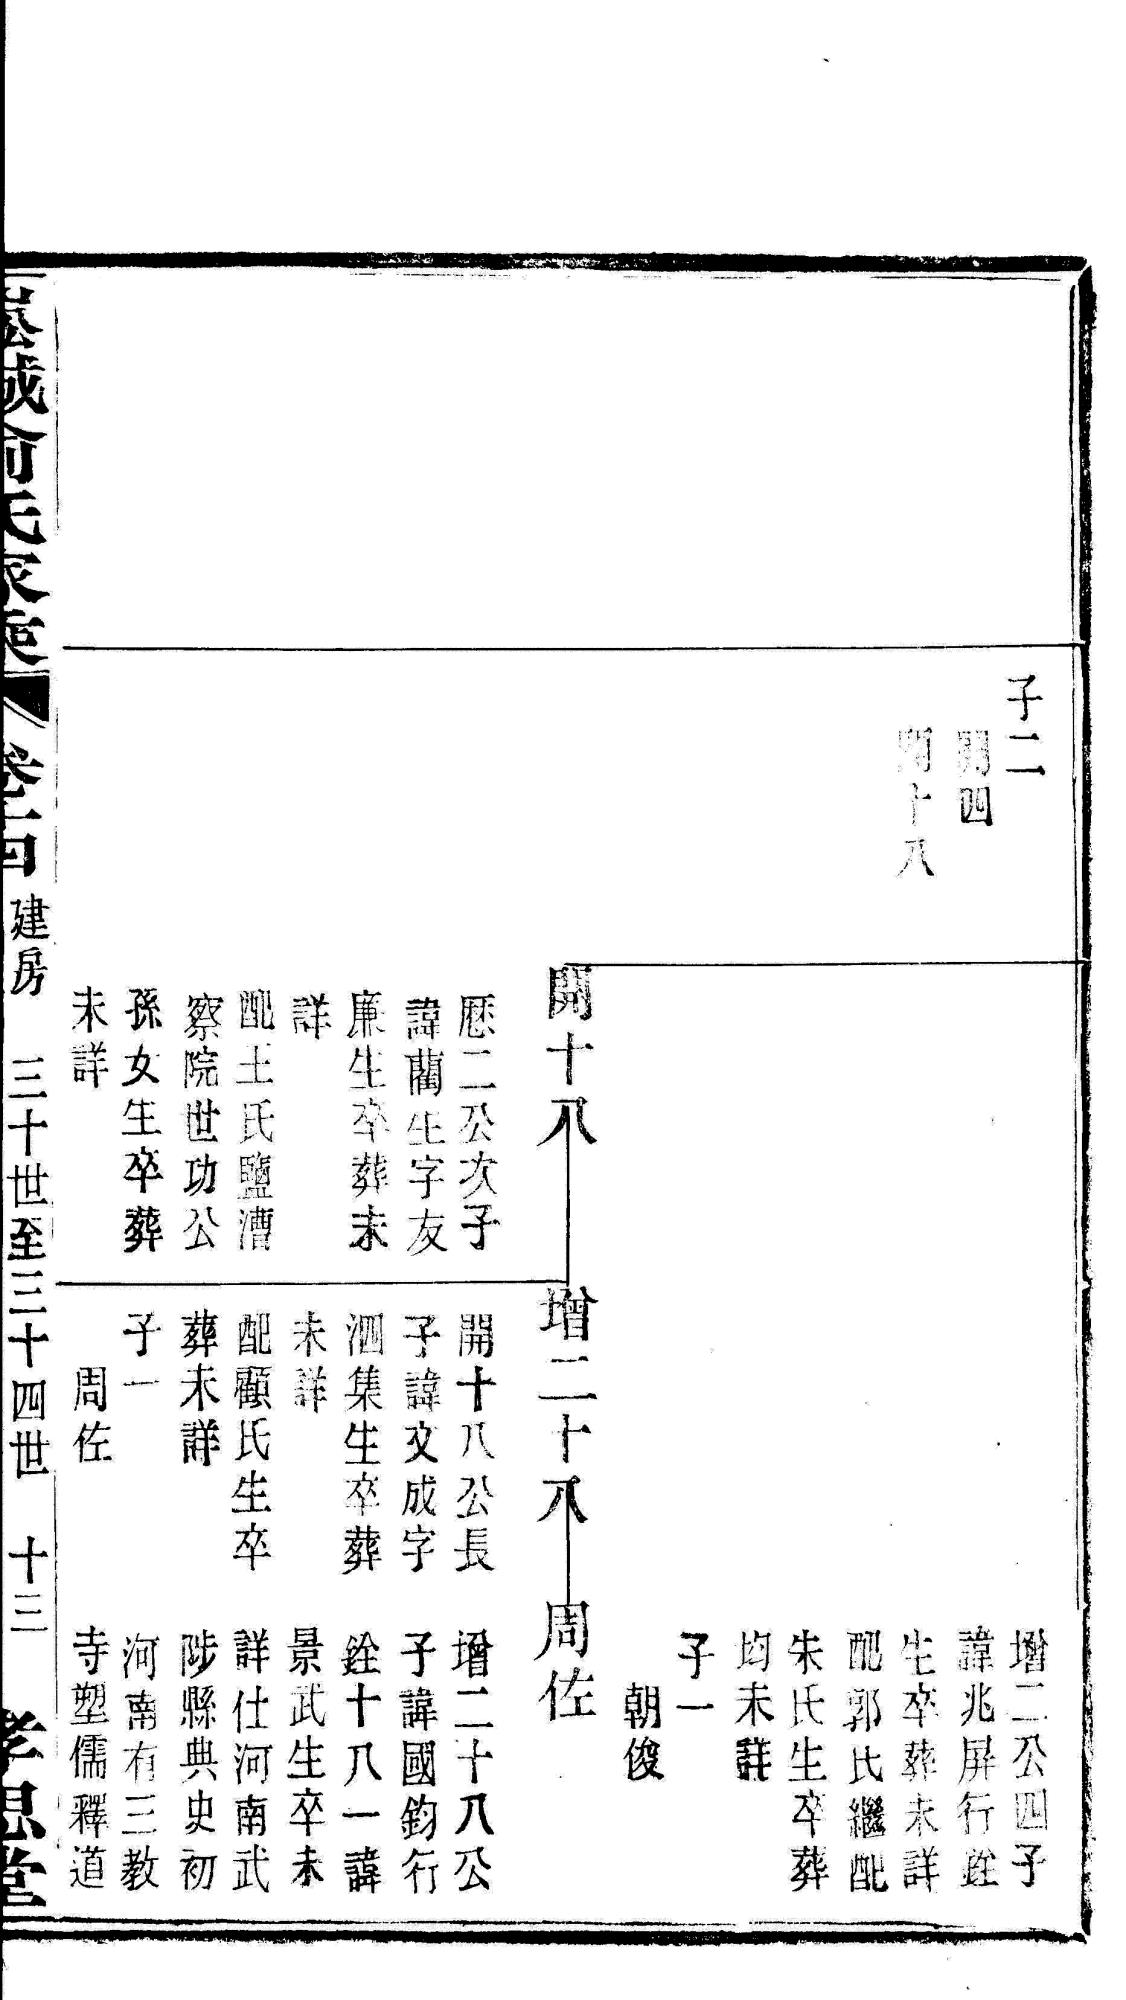 子二
開四
開十八
增二公四子
諱兆屏行銓
生卒葬未詳
配郭氏繼配
朱氏生卒葬
均未詳
子一
朝俊
開十八
歴二公次子
諱藺生字友
廉生卒葬未
詳
配王氏鹽漕
察院世功公
孫女生卒葬
未詳
增二十八
開十八公長
子諱文成字
泗集生卒葬
未詳
配顧氏生卒
葬未詳
子一
周佐
周佐
增二十八公
子諱國鈞行
銓十八一諱
景武生卒未
詳仕河南武
陟縣典史初
河南有三教
寺塑儒釋道
崧城俞氏家乘 卷十四 建房 三十世至三十四世 十三 孝思堂